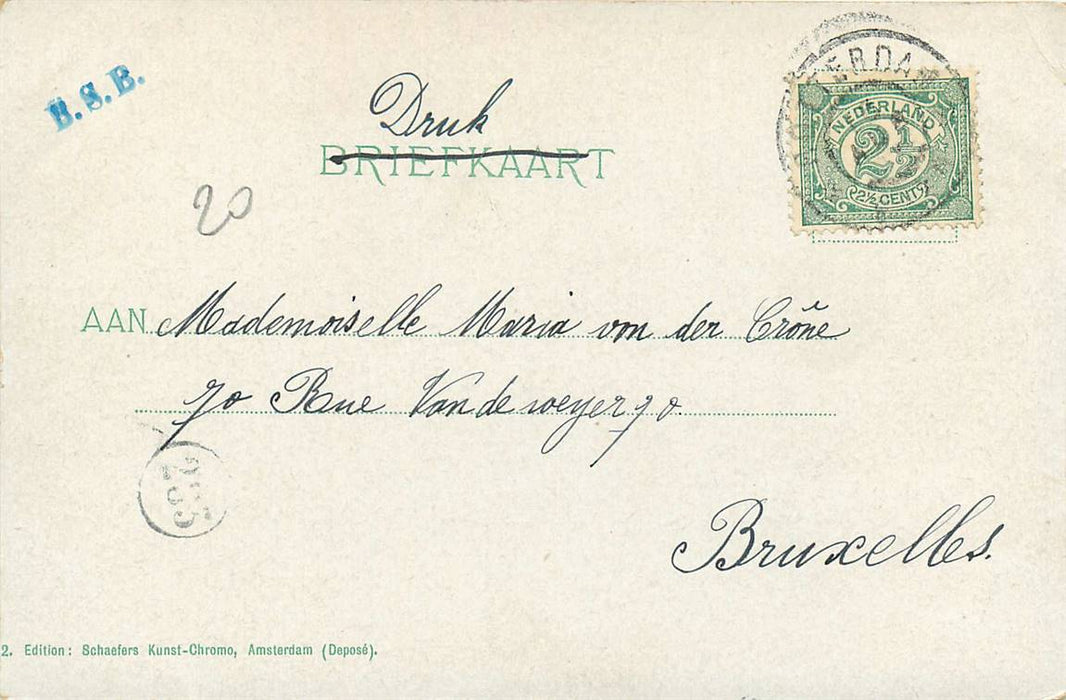 B.S.B.
Druk
BRIEFKAART
20
NEDERLAND
2½
2½ CENT
AAN Mademoiselle Maria von der Crône
70 Rue Van de weyer 70.
Bruxelles.
2. Edition: Schaefers Kunst-Chromo, Amsterdam (Deposé).